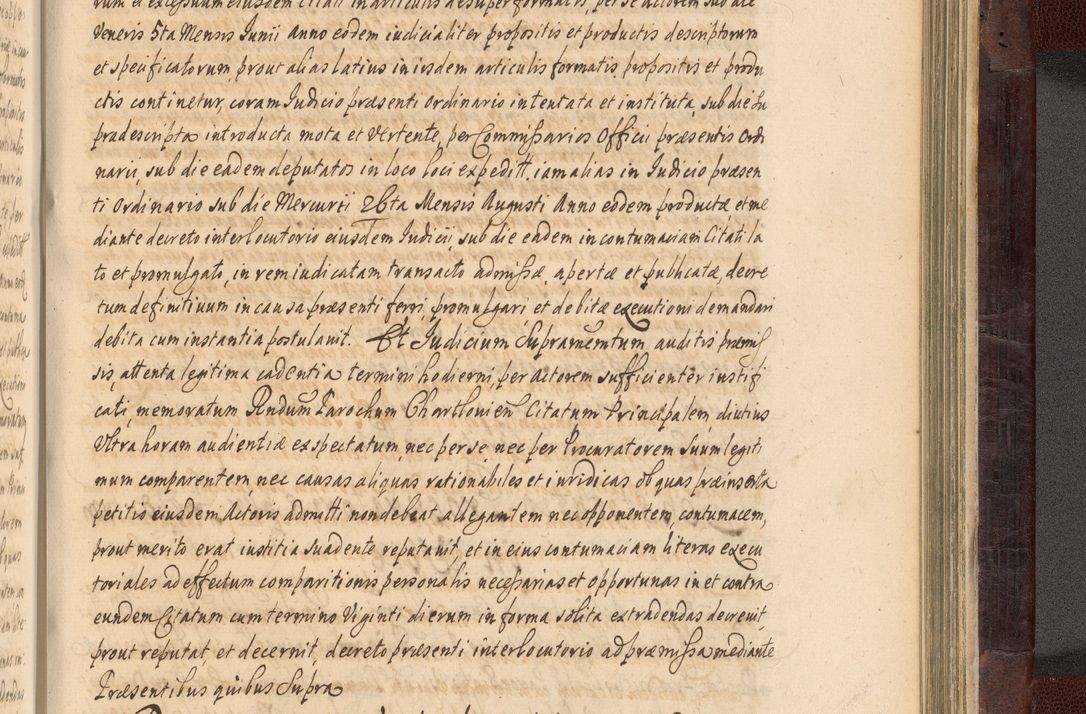 rum et excessuum eiusdem Citati in articulis desuper formatis, per se actorem sub die
Veneris 5ta Mensis Iunii anno eodem iudicialiter propositis et productis descriptorum
et specificatorum, prout alias latius in iisdem articulis formatis propositis et produ
ctis continetur, coram Iudicio præsenti ordinario intentata et instituta, sub die su
pradescripta introducta mota et vertente, per Commissarios Officii præsentis Ordi
narii, sub die eadem deputatos in loco loci expeditt. iam alias in Iudicio præsen
ti Ordinario sub die Mercurii 26ta Mensis Augusti Anno eodem productæ, et me
diante decreto interlocutorio eiusdem Iudicii, sub die eadem in contumaciam Citati la
to et promulgato, in rem iudicatam transacto admissæ, apertæ et publicatæ, decre
tum definitivum in causa præsenti ferri, promulgari et debitæ executioni demandari
debita cum instantia postulavit. Et Iudicium Supramemtum auditis præmis
sis, attenta legitima cadentia termini hodierni, per Actorem sufficienter iustifi
cati, memoratum Rndum Parochum Charthovien Citatum Principalem, diutius
Ultra horam audientiæ expectatum, nec per se, nec per Procuratorem suum legiti
mum comparentem, nec causas aliquas rationabiles et iuridicas ob quas præinserta
petitio eiusdem Actoris admitti non debeat allegantem nec opponentem, contumacem,
prout merito erat iustitia suadente reputavit, et in eius contumaciam literas execu
toriales ad effectum comparitionis personalis necessarias et opportunas in et contra
eundem Citatum cum termino Viginti dierum in forma solita extradendas decrevit,
prout reputat, et decernit, decreto præsenti interlocutorio ad præmissa mediante
Præsentibus quibus Supra